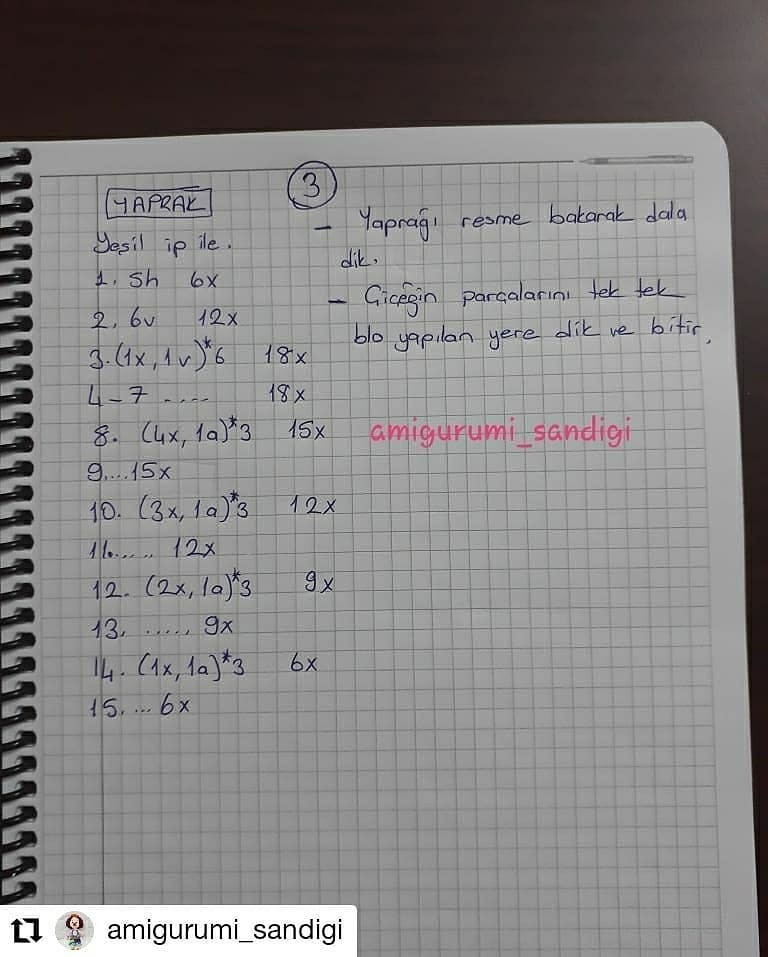 3
YAPRAK
Yeşil ip ile.
1. Sh 6x
2. 6v 12x
3. (1x, 1v)*6 18x
4-7 .... 18x
8. (4x, 1a)*3 15x
9....15x
10. (3x, 1a)*3 12x
11..... 12x
12. (2x, 1a)*3 9x
13. ..... 9x
14. (1x, 1a)*3 6x
15. ... 6x
- Yaprağı resme bakarak dala
dik.
- Çiçeğin parçalarını tek tek
blo yapılan yere dik ve bitir.
amigurumi_sandigi
amigurumi_sandigi